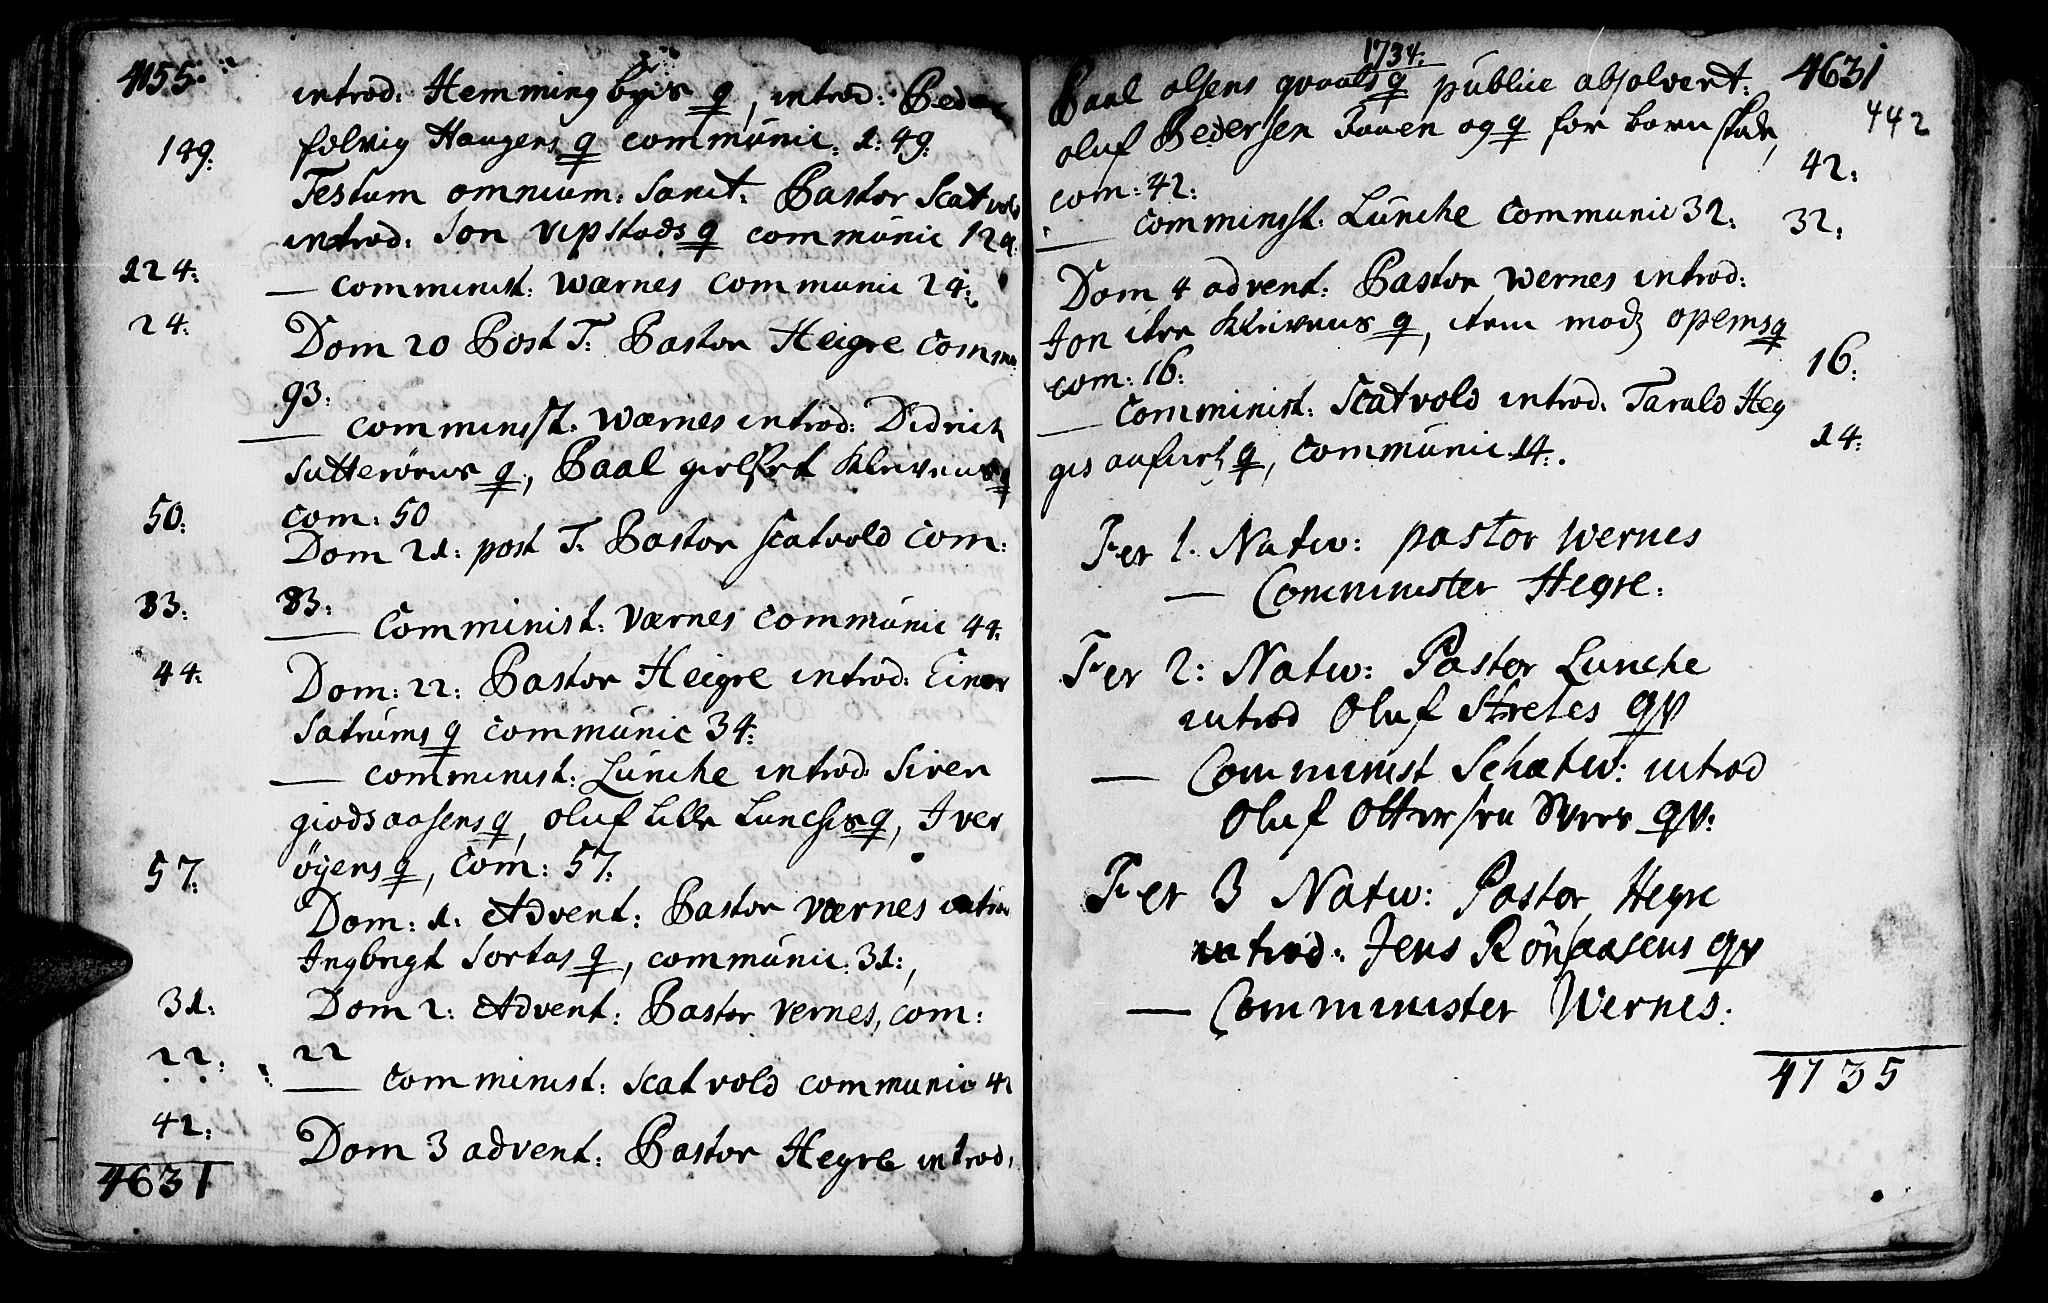 4155.
introd: Hemming byes q, introd: Peder
149:
folvig Haugens q communic: 1:49:
Festum omnium: Sanct: Pastor Scatvold
introd: Jon vepstads q communic 124:
124:
— comminist: wærnes communic 24:
24:
Dom 20 Post T: Pastor Heigre commu
93:
— comminist. wærnes introd: Didrich
Sutterörens q, Paal q
50:
com: 50
Dom 21: post T: Pastor Scatvold com:
83:
83:
— Comminist: værnes communic 44:
44:
Dom: 22: Pastor Heigre introd: Einer
Satrums q communic 34:
— comminist: Lünche introd: Siver
giodsaasens q, oluf Lille Lunches q, Iver
57:
öyens q, com: 57:
Dom: 1: Advent: Pastor værnes intro
Ingbrigt Sortas q, communic: 31:,
31:
Dom 2: Advent: Pastor vernes, com:
22:
22
— comminist: Scatvold communic 42
42:
Dom 3 advent: Pastor Hegre introd:
4631
1734.
4631
Paal olsens q publice absolvert:
442
oluf Pedersen og q for barn
42:
com: 42:
— comminist: Lünche communic 32:
32:
Dom 4 advent: Pastor wernes introd:
Jon itre Klevens q, item opems q
16:
com: 16:
— Comminist: Scatvold introd: Tarald Hey
14:
gis q, communic 14:.
Fer 1. Nativ: pastor Wernes
— Comminister Hegre:
Fer 2: Nativ: Pastor Lunche
introd Oluf qv
— Comminist Schatv: introd
Oluf Ottersen qv:
Fer 3 Nativ: Pastor Hegre
introd: Jens Rönsaasens qv
— Comminister Wernes:
4735